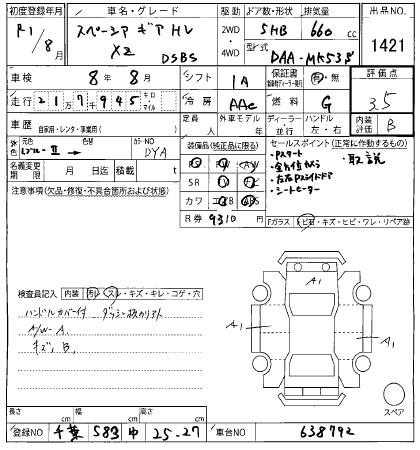 初度登録年月 車名・グレード 駆動 ドア数・形状 排気量 出品NO
R1/8月 スペーシア ギア HV 2WD 5HB 660cc 1421
XZ DSBS 4WD 型式 DAA-MK53S
車検 8年8月 シフト IA 保証書 有・無 評価点
走行 217945 キロ マイル 冷房 AAC 燃料 G 3.5
車歴 自家用・レンタ・事業用( ) 定員 人 外車モデル 年 ディーラー 並行 ハンドル 左・右 内装評価 B
外色 元色 色替 カラーNO 装備品(純正品に限る) セールスポイント(正常に作動するもの)
II → DYA ・Pスタート ・取説
名義変更期限 月 日迄 積載 t SR ・全方位カメラ
注意事項(欠品・修復・不具合箇所および状態) カワ ・左右Pスライドドア
・シートヒーター
R券 9310円 Fガラス トビ石・キズ・ヒビ・ワレ・リペア跡
検査員記入 内装 汚レ・スレ・キズ・キレ・コゲ・穴 A1
ハンドルカバー付
A/W-A A1 A1
キズ、B、
長さ cm 幅 cm 高さ cm スペア
登録NO 千葉 583 ゆ 25-27 車台NO 638792